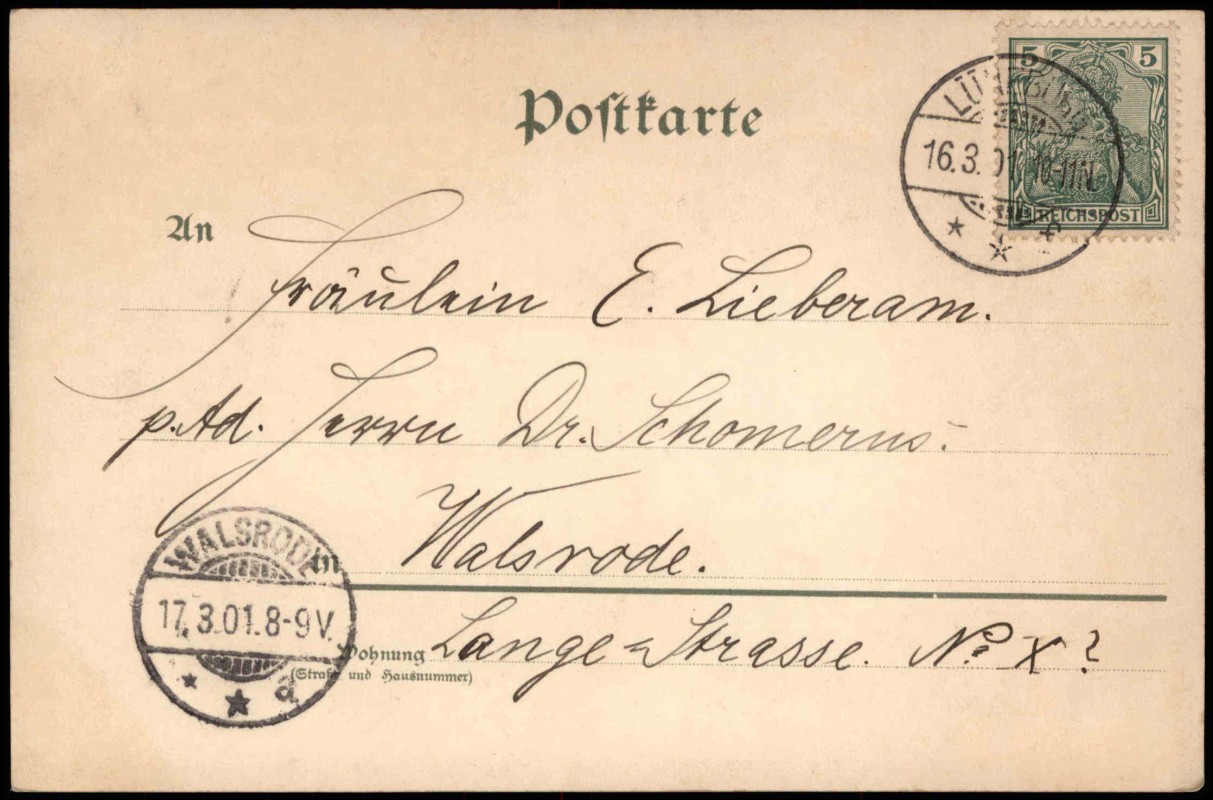 Postkarte
5 5
LÜNEBURG
16.3.01. 10-11N.
* * f
REICHSPOST
An
Fräulein E. Lieberam.
p. Ad. Herrn Dr. Schomerus.
in Walsrode.
WALSRODE
17.3.01.8-9V.
* * a
Wohnung Lange=Strasse. No X?
(Straße und Hausnummer)